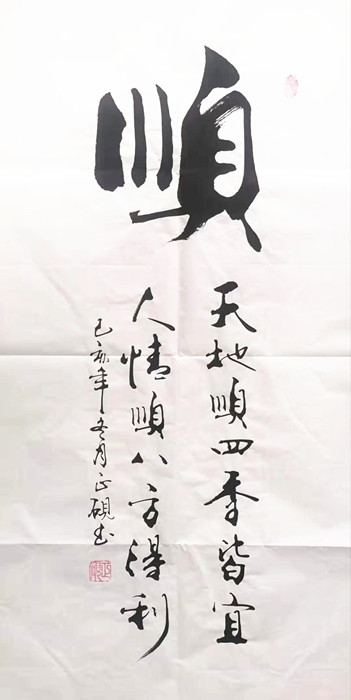 順
天地順四季皆宜
人情順八方得利
己亥年冬月正硯書